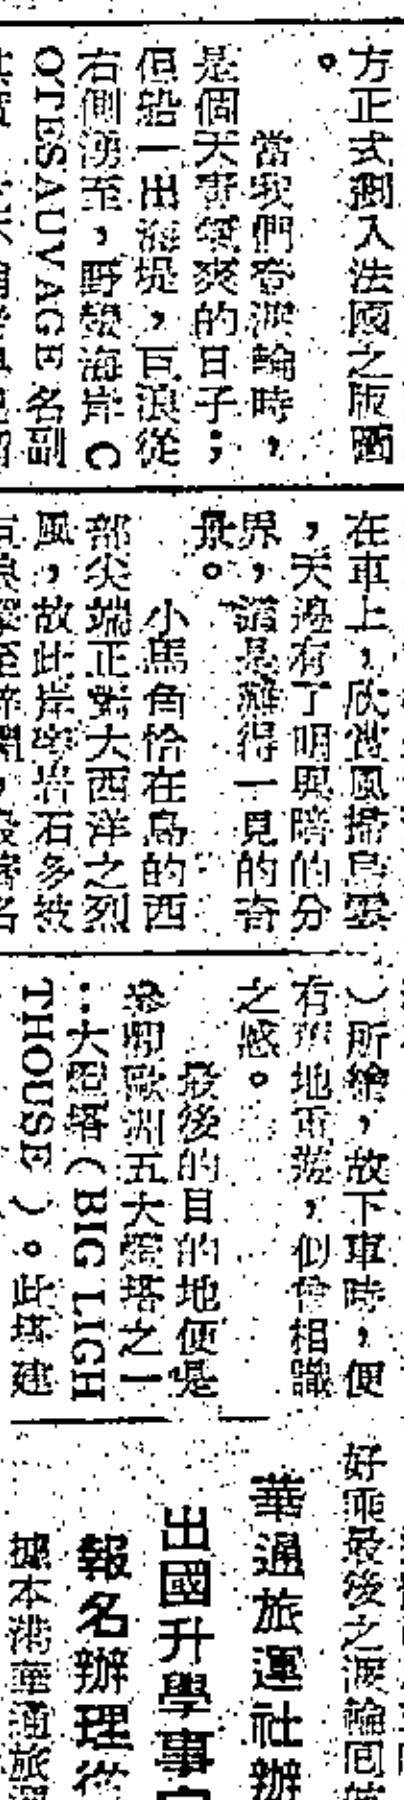 方正式劃入法國之版圖
。
當我們登渡輪時，
是個天晴氣爽的日子；
但船一出海堤，巨浪從
右側湧至，野蠻海岸C
OTESAUVAGE名副
在車上，欣賞風掃烏雲
，天邊有了明與暗的分
界，滿是難得一見的奇
景。
小馬角恰在島的西
部尖端正對大西洋之烈
風，故此岸岩石多被
）所繪，故下車時，便
有舊地重遊，似曾相識
之感。
最後的目的地便是
參觀歐洲五大燈塔之一
：大燈塔（BIG LIGH
THOUSE）。此塔建
好乘最後之渡輪回
華通旅運社辦
出國升學事
報名辦理從
據本港華通旅運